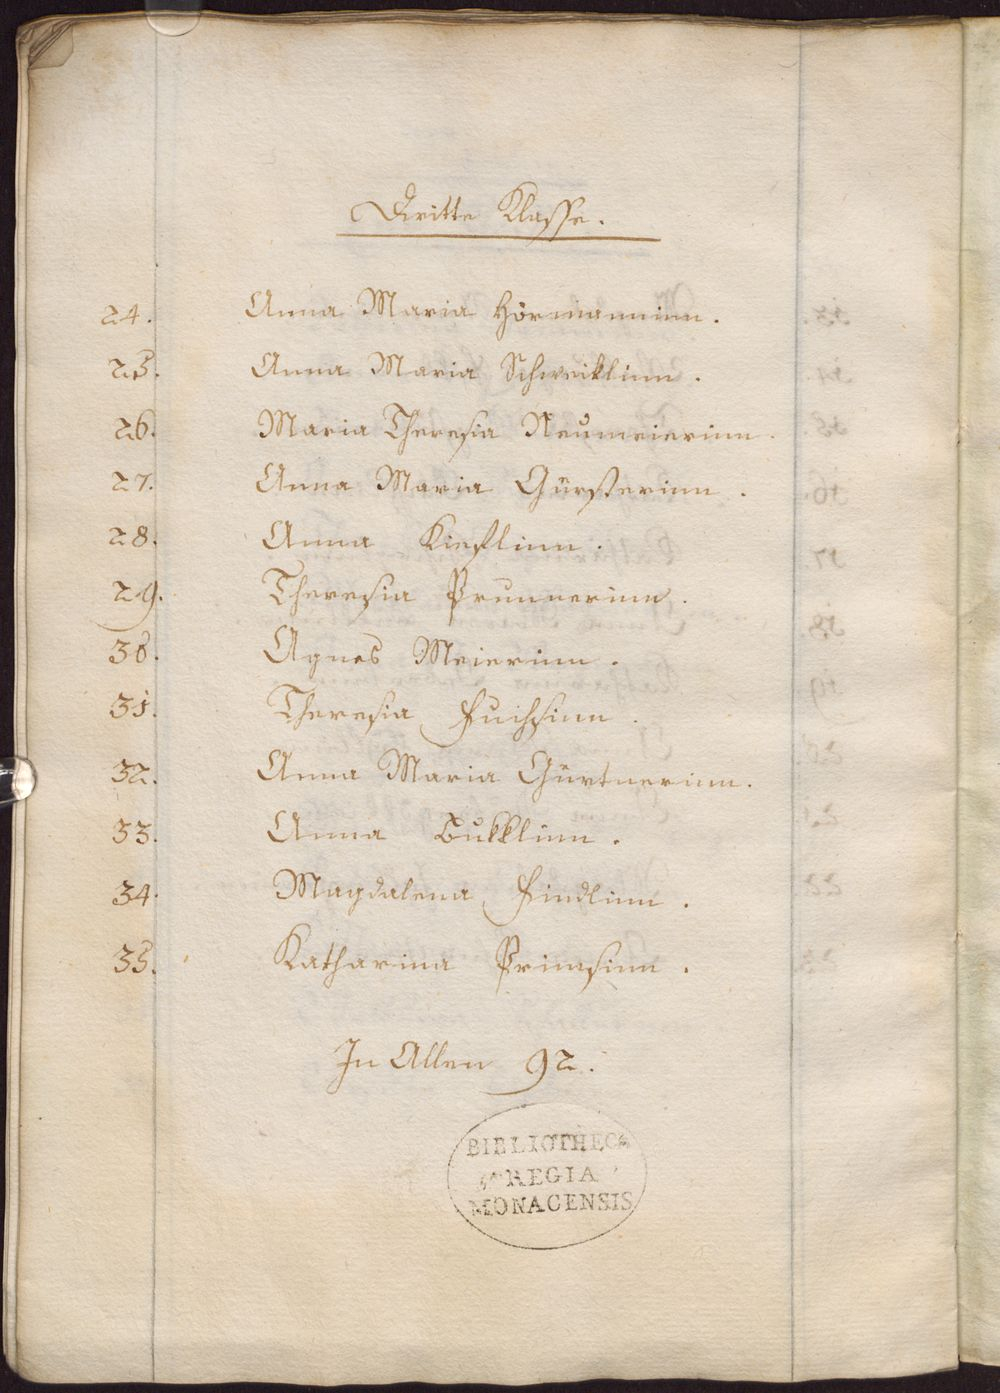 Dritte Klasse.
24. Anna Maria Hörmaninn.
25. Anna Maria Schweiklinn.
26. Maria Theresia Neumeierinn.
27. Anna Maria Gürsterinn.
28. Anna Kieslinn.
29. Theresia Prunnerinn.
30. Agnes Meierinn.
31. Theresia Fuchsinn.
32. Anna Maria Gürtnerinn.
33. Anna Bukklinn.
34. Magdalena Findlinn.
35. Katharina Primsinn.
In Allen 92.
BIBLIOTHECA
REGIA
MONACENSIS